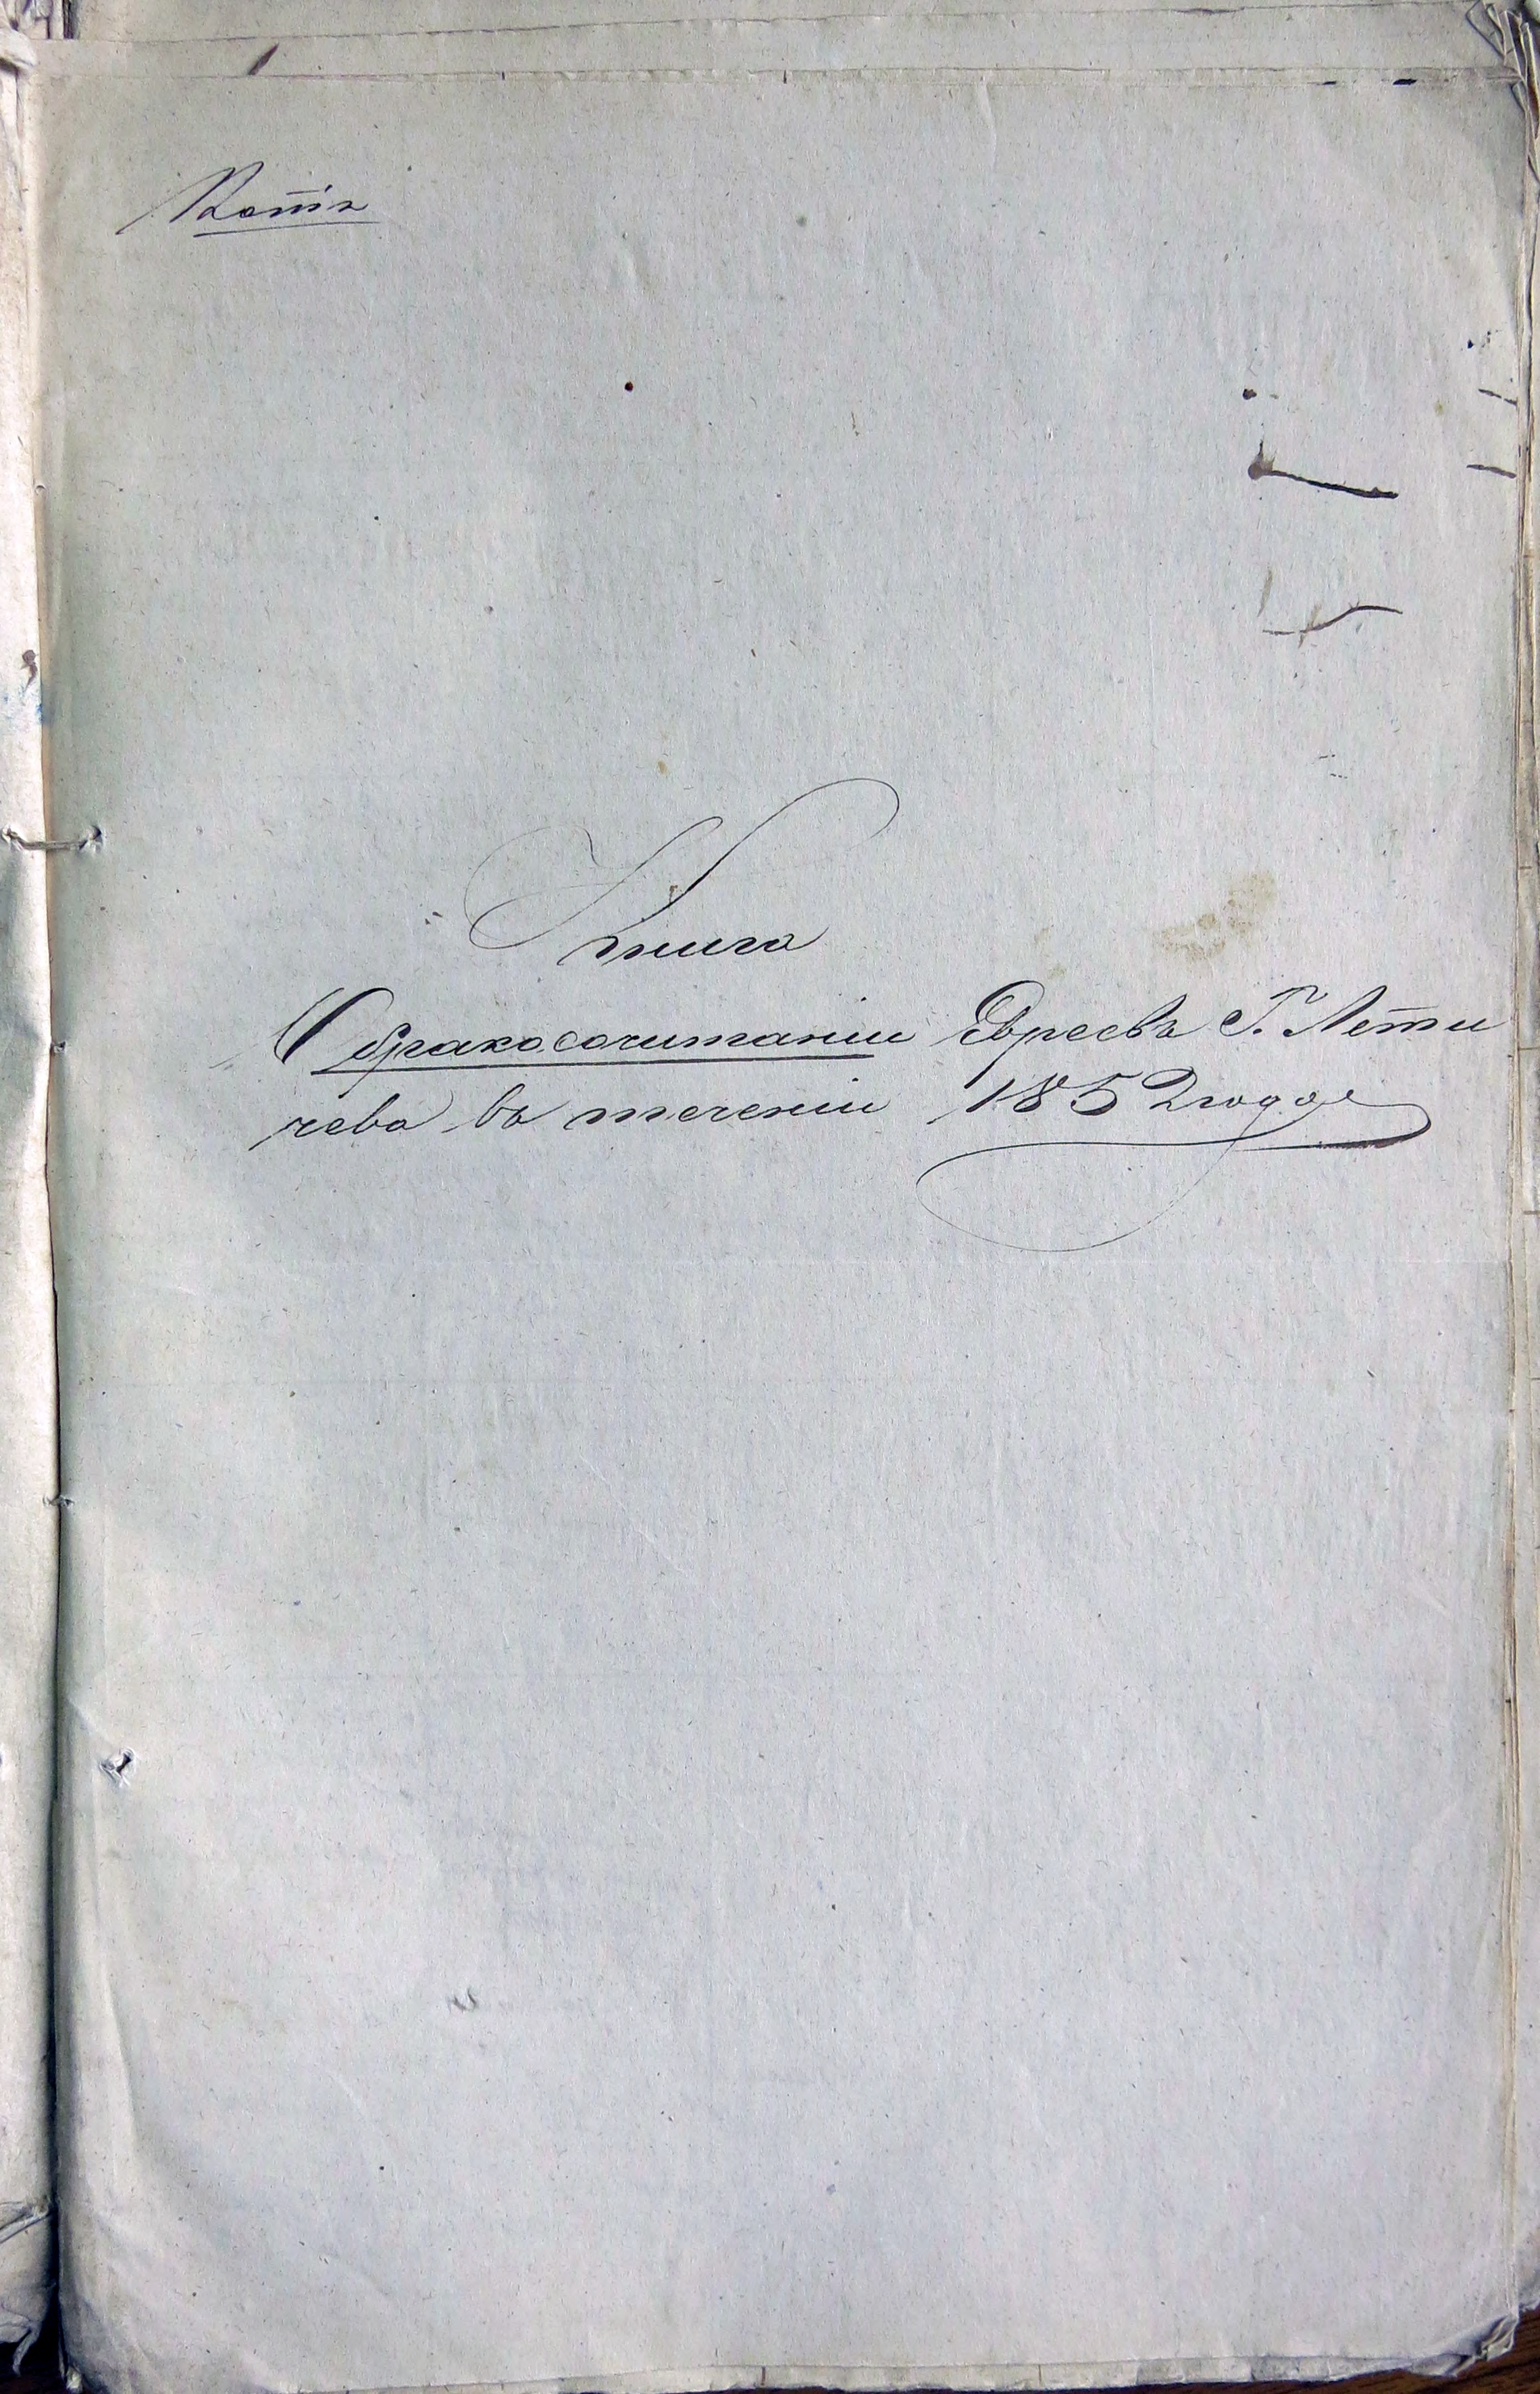 Копія
Книга
О бракосочитаніи Евреевъ Г. Лети
чева въ теченіи 1852 года